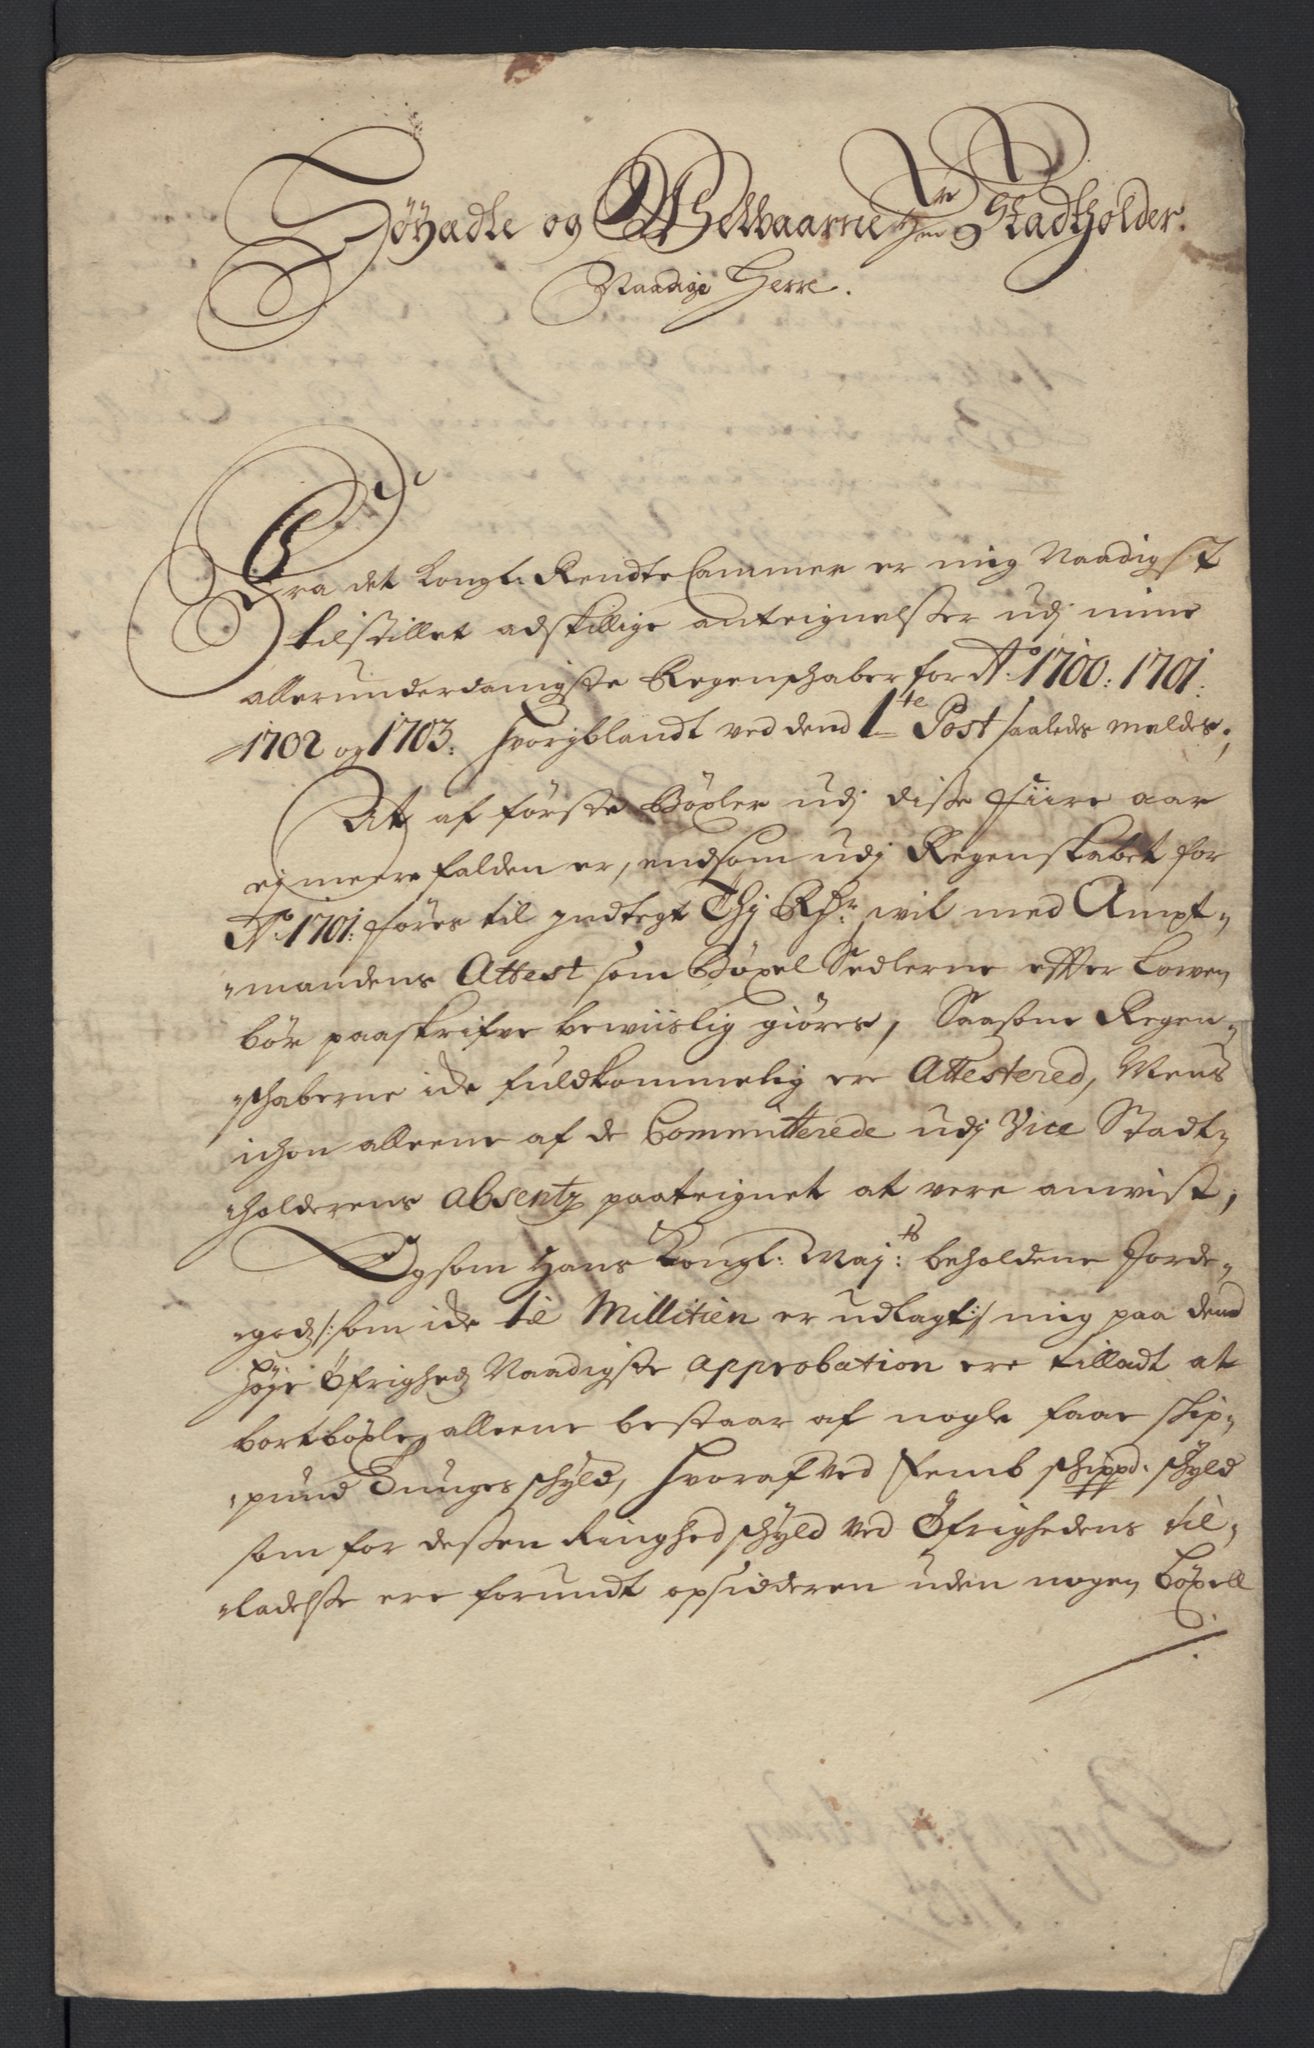 Høyædle og Welbaarne Hr Vice Stadtholder.
Naadige Herre.
Fra det Kongl: Rendte Cammer er mig Naadigst
tilstillet adskillige anteignelsser udj mine
allerunderdanigste Regenschaber for Ao: 1700: 1701:
1702 og 1703: hvoriblandt ved dend 1te Post saaledes meldes;
At af første Bøxler udj disse fiire aar
ej meere falden er, endsom udj Regenskabet for
Ao: 1701: føres til indtegt Thj Rdr. vil med Ampt-
mandens Attest som Bøxel Sedlerne effter Lowen
bør paaskrifve bewiislig giøres, Saasom Regen-
schaberne icke fuldkommelig ere Attestered, Mens
ichon alleene af de Committerede udj Vice Stadt-
holderens absentz paateignet at vere anvist;
Og som Hans Kongl: Maj:ts beholdene Jorde-
godz /: som icke til Millitien er udlagt :/ mig paa dend
høje Øfrigheds Naadigste approbation ere tilladt at
bortbøxle, alleene bestaar af nogle faae skip-
pund Tunges schyld, hvoraf ved femb schippd: schyld
som for dessen Ringhed schyld ved Øfrighedens til-
ladelsse ere forundt opsidderen uden nogen bøxell